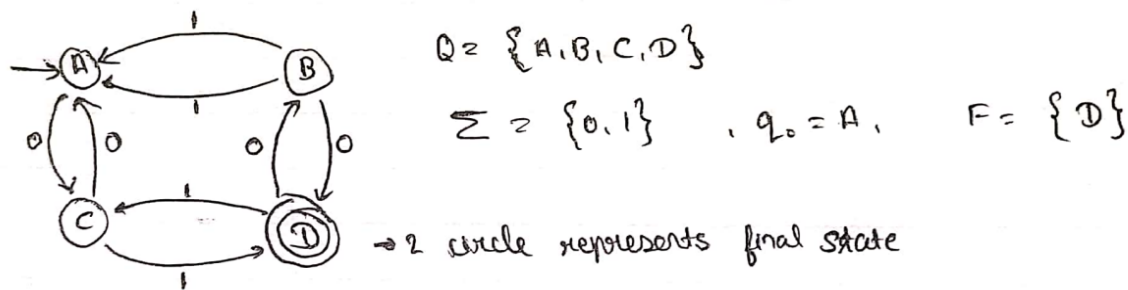 1
A
B
1
0
0
0
0
1
C
D
1
Q = {A, B, C, D}
Σ = {0, 1} , q₀ = A, F = {D}
→ 2 circle represents final state